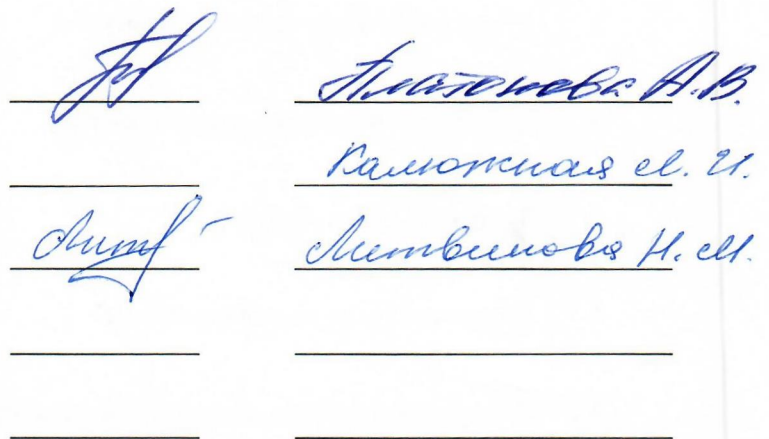 Платонова А.В.
Калюжная Л.И.
Литвинова Н.М.